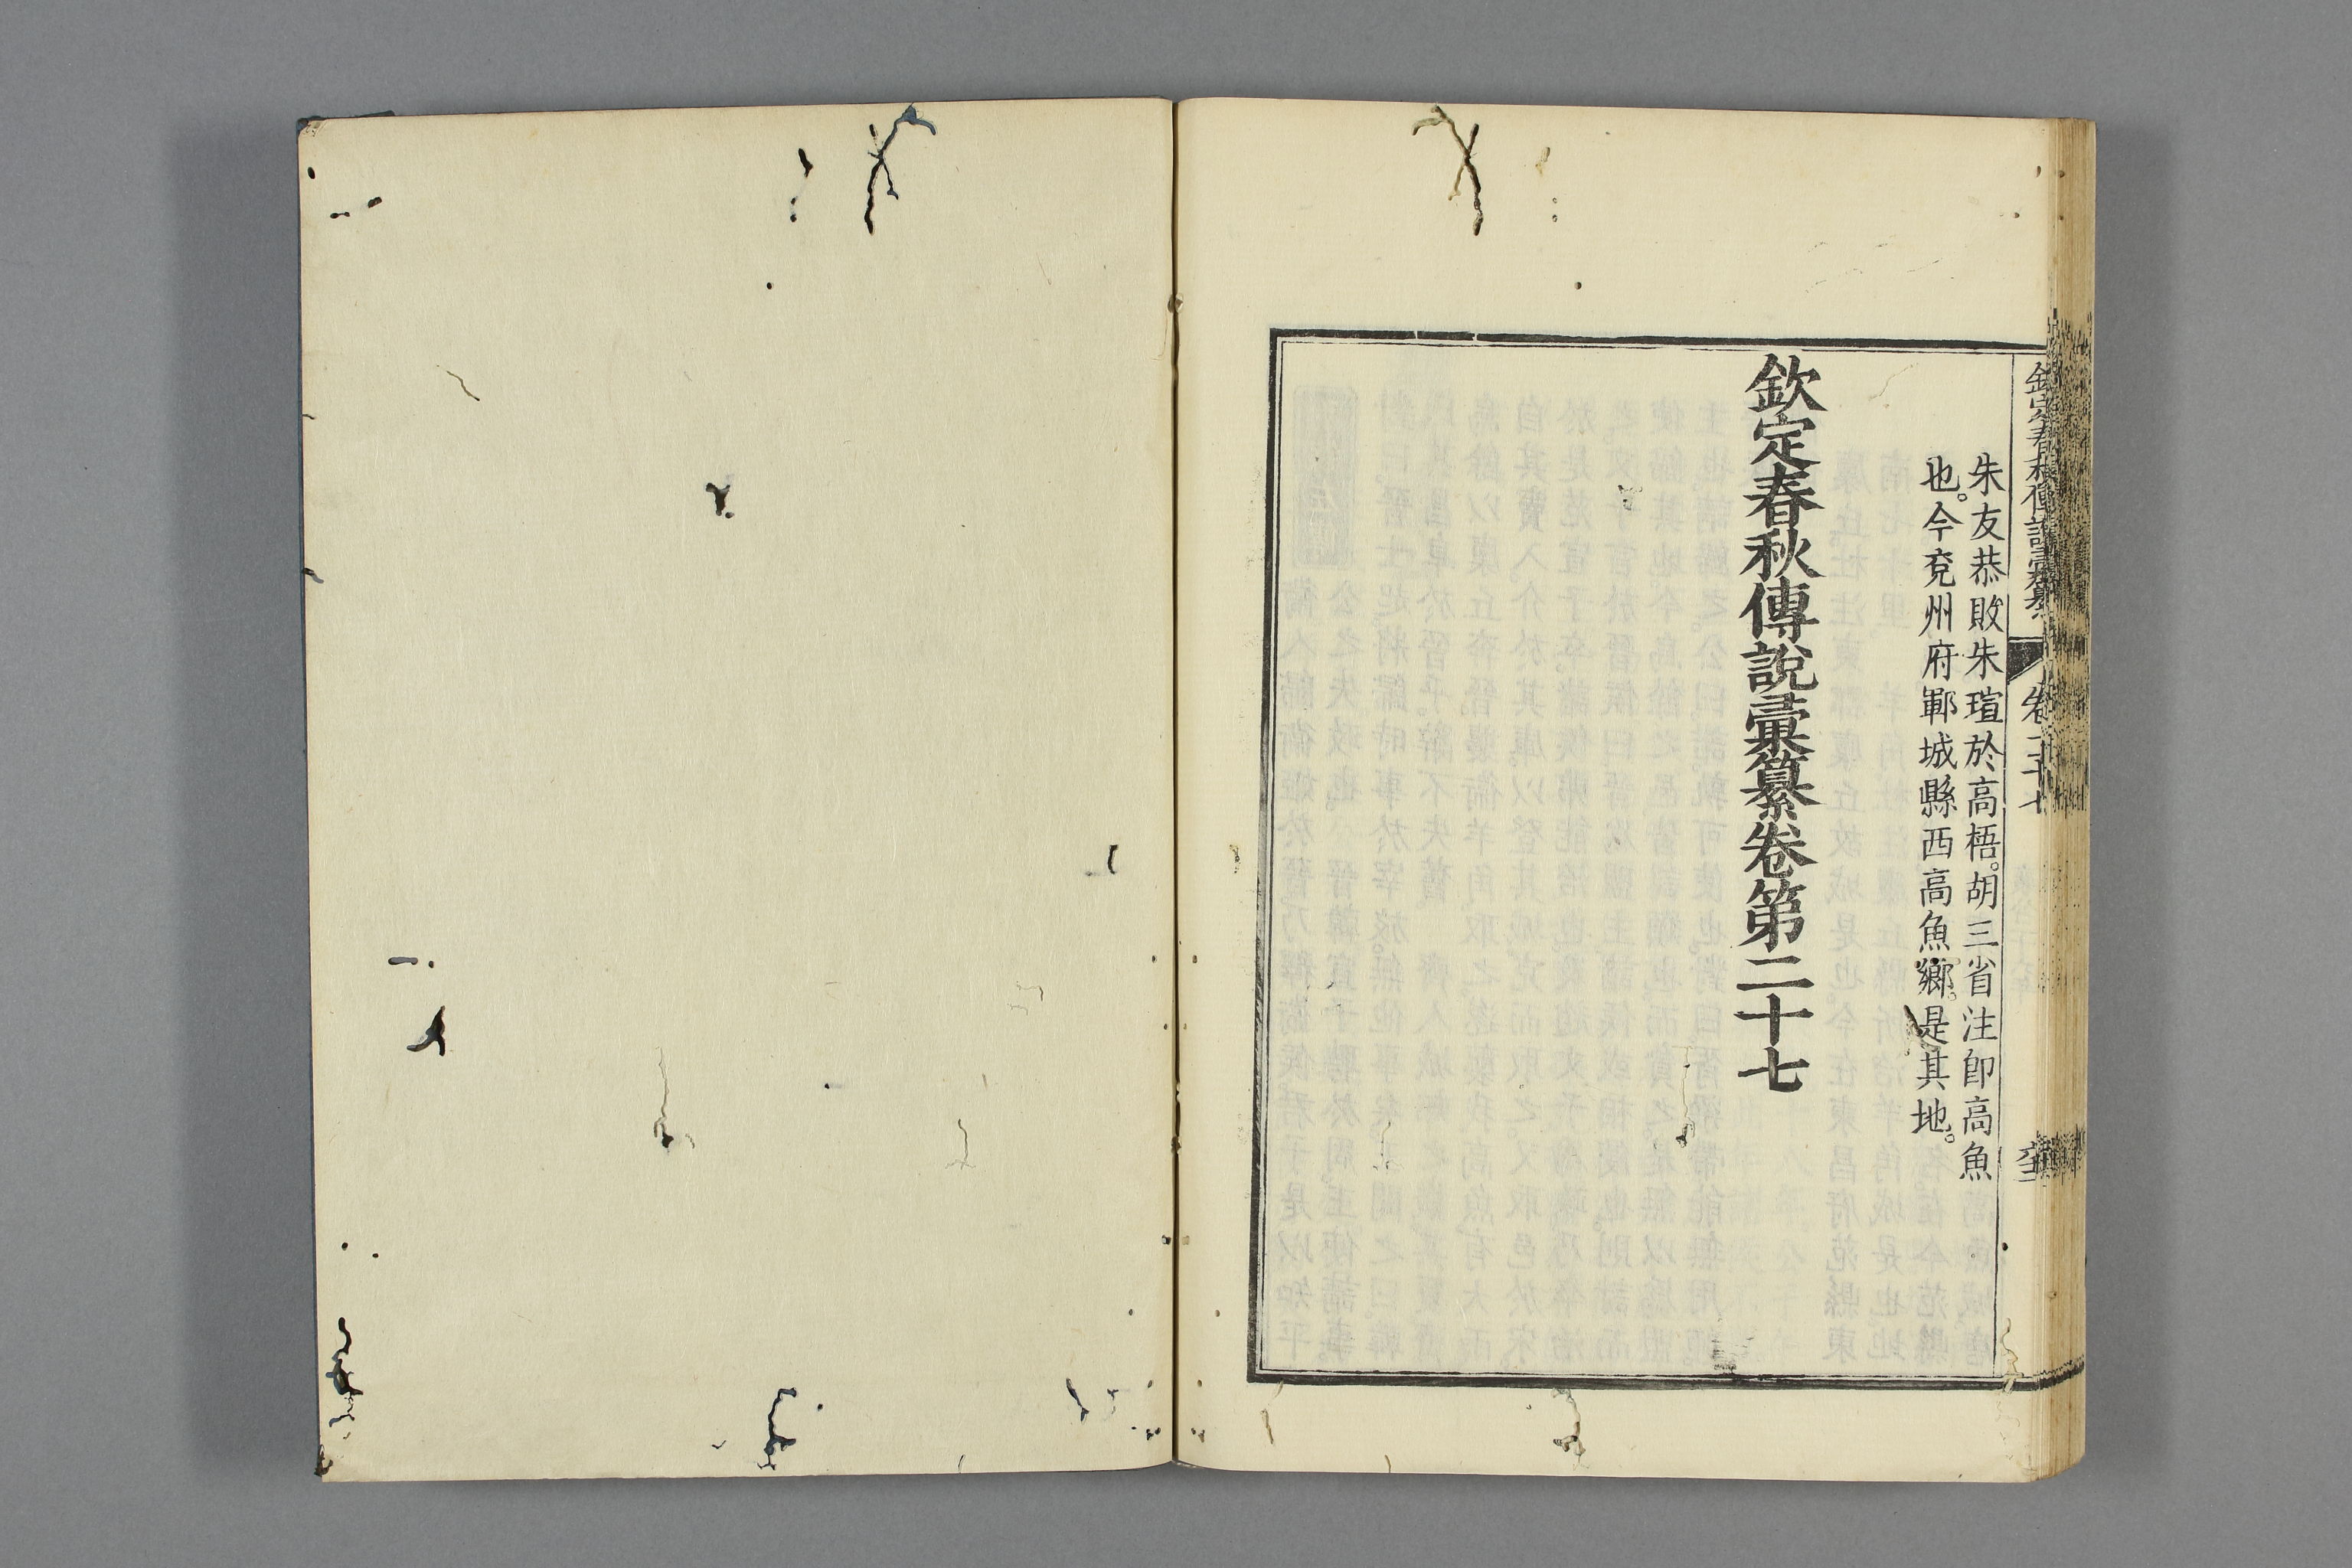 欽定春秋傳說彙纂 卷二十七
朱友恭敗朱瑄於高梧。胡三省注卽高魚
也。今兖州府鄆城縣西高魚鄉。是其地。
欽定春秋傳說彙纂卷第二十七